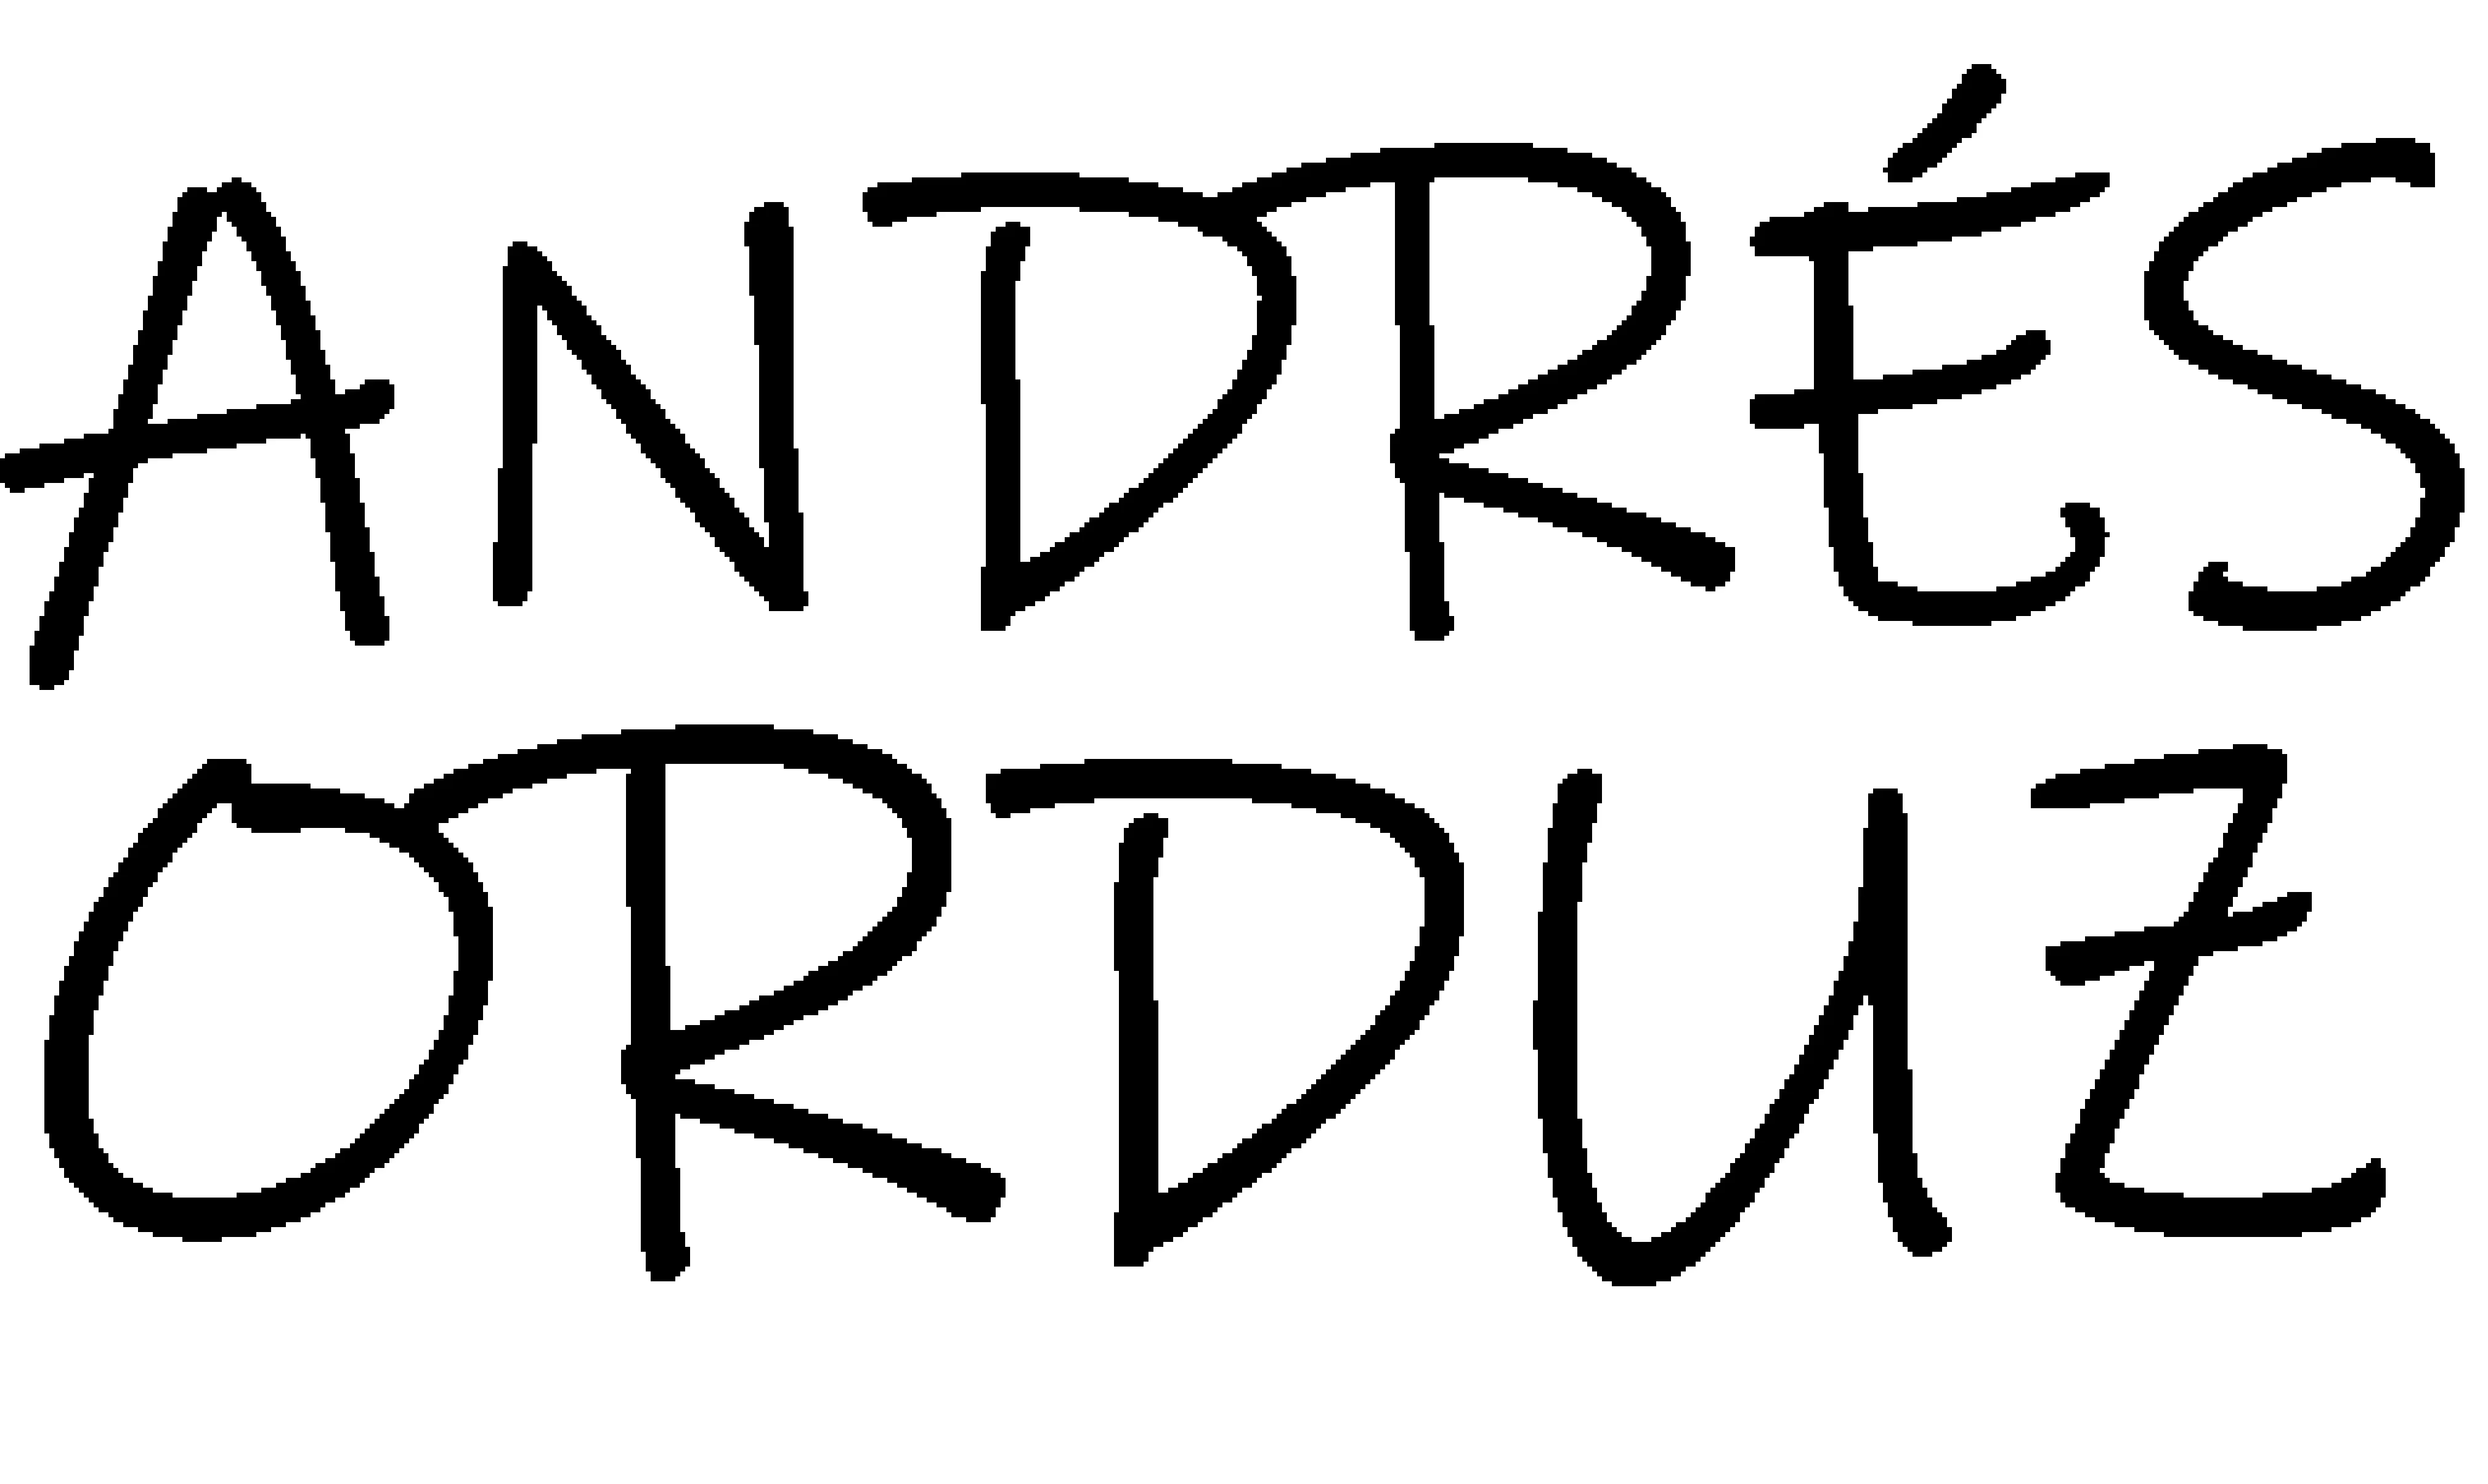 ANDRÉS
ORDUZ